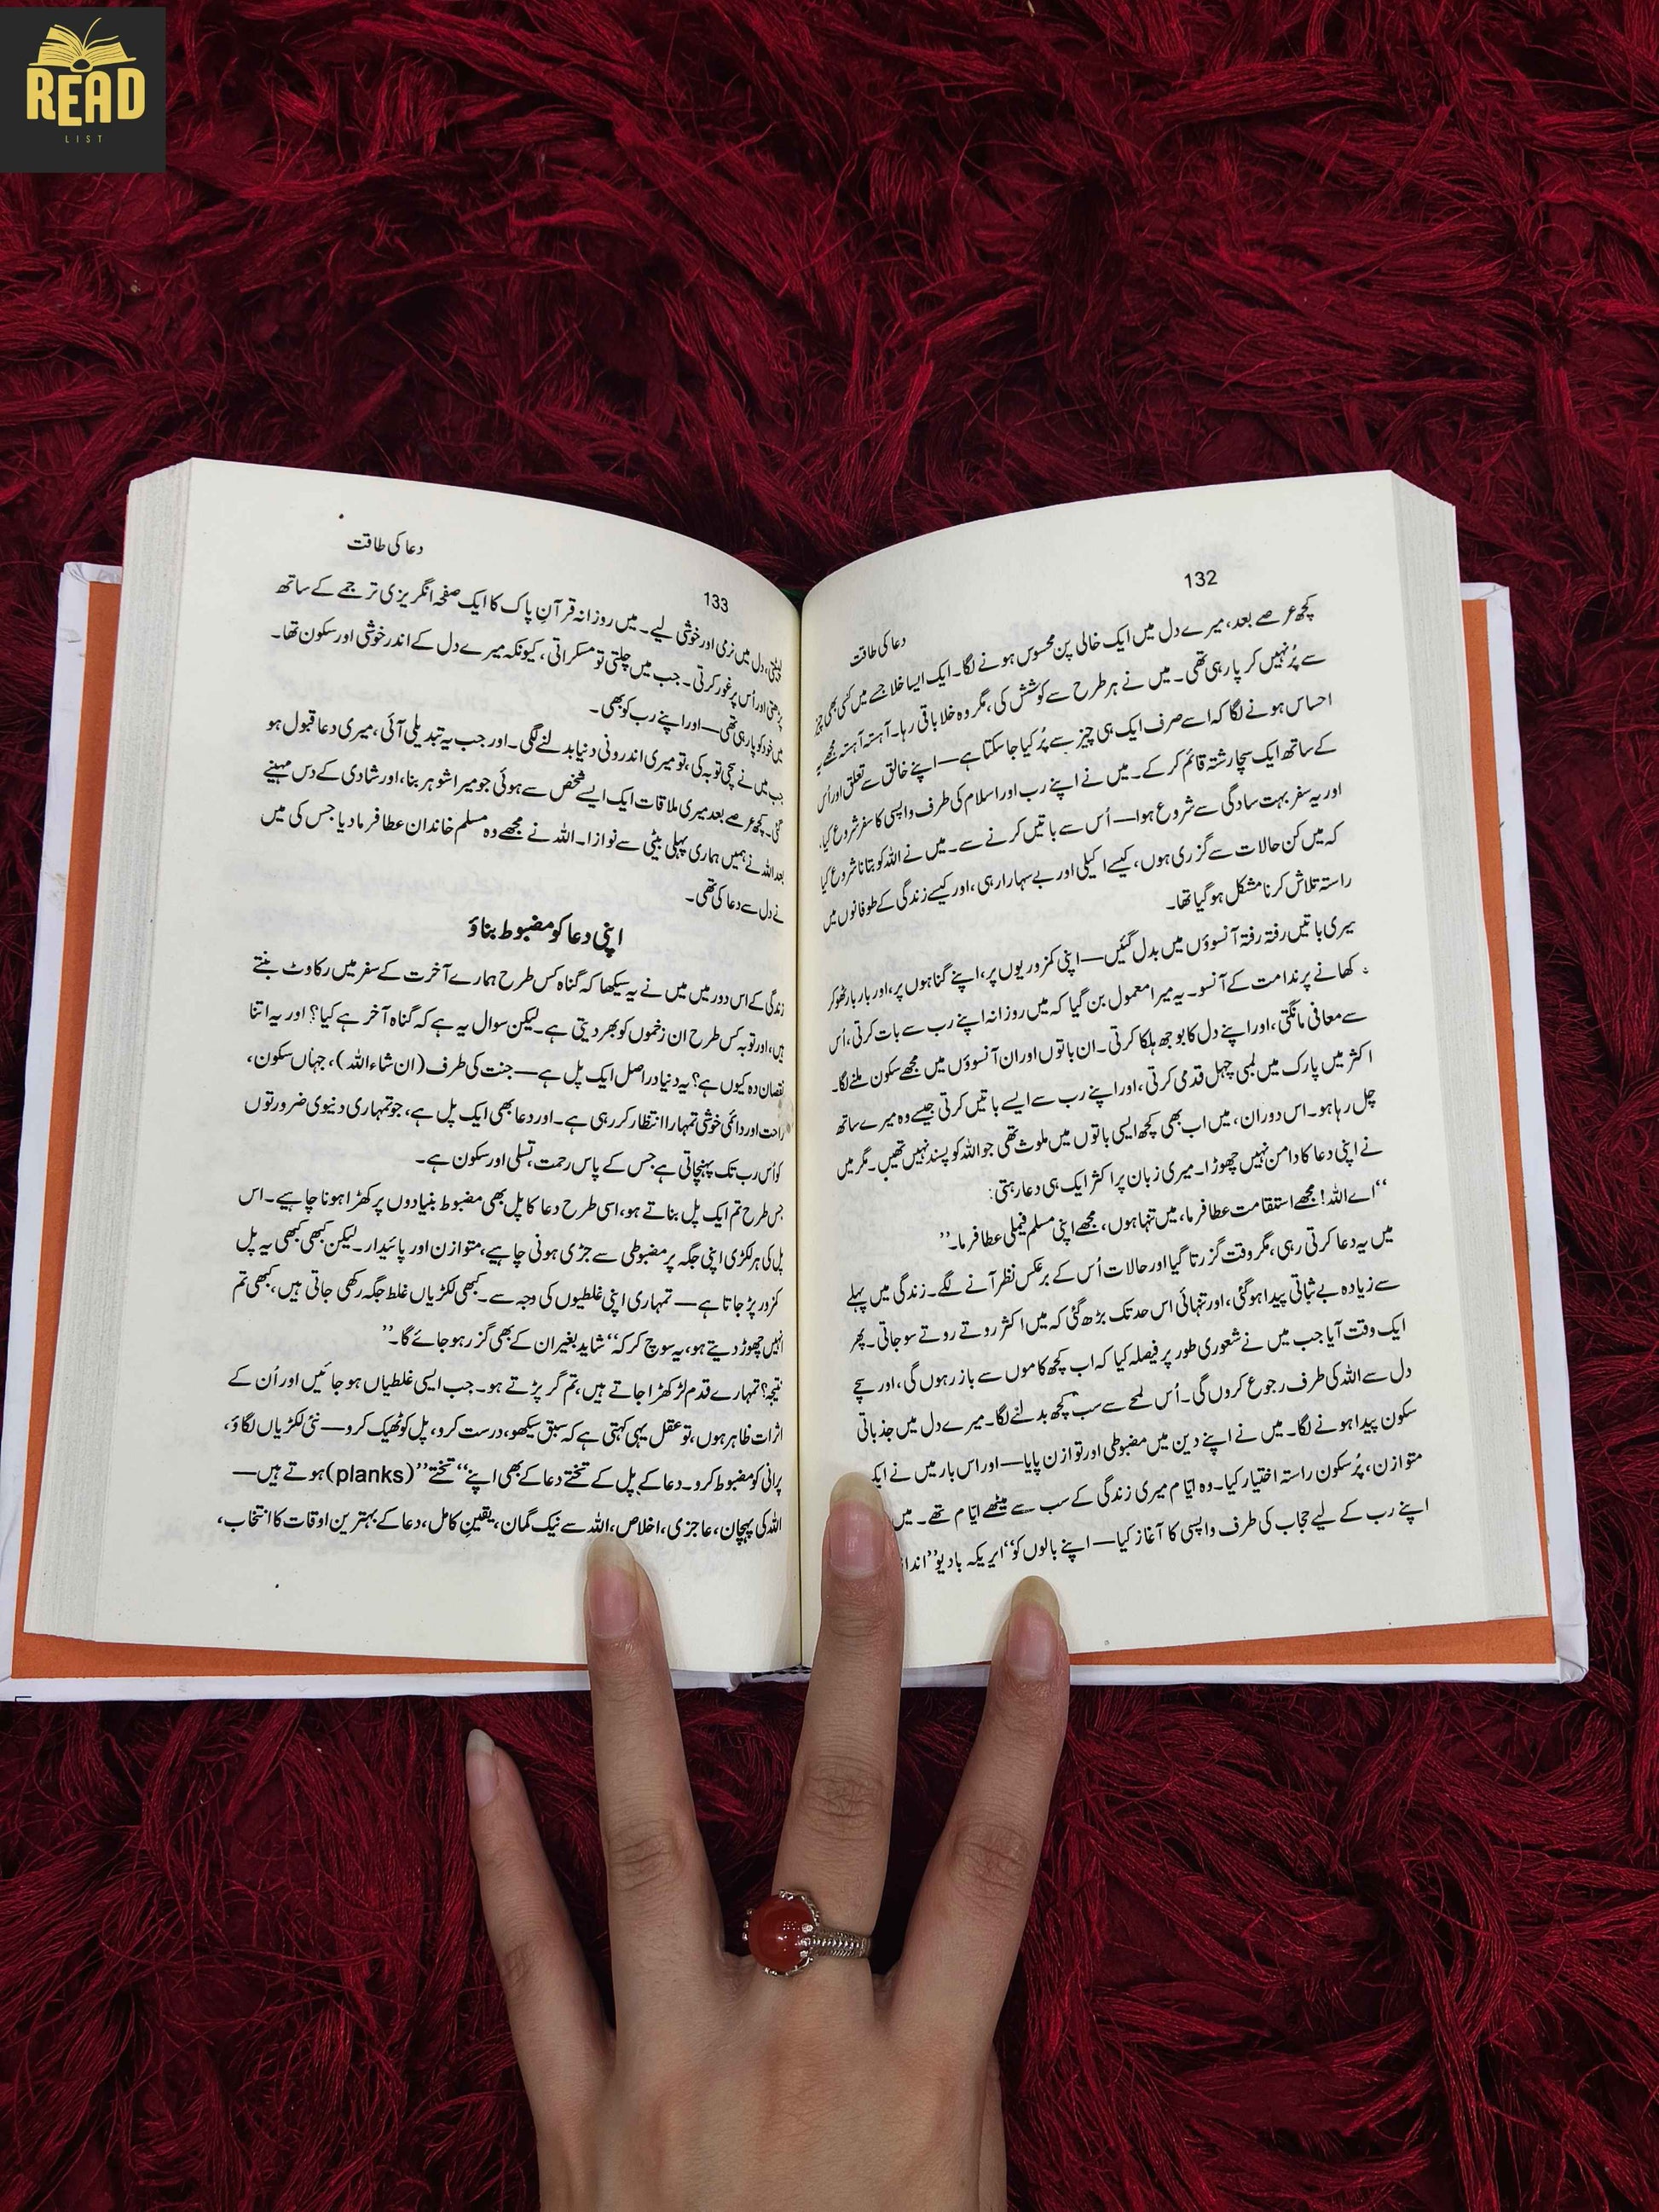 READ
LIST
132
دعا کی طاقت
کچھ عرصے بعد، میرے دل میں ایک خالی پن محسوس ہونے لگا۔ ایک ایسا خلا جسے میں کسی بھی چیز
سے پُر نہیں کر پا رہی تھی۔ میں نے ہر طرح سے کوشش کی، مگر وہ خلا باقی رہا۔ آہستہ آہستہ مجھے یہ
احساس ہونے لگا کہ اسے صرف ایک ہی چیز سے پُر کیا جا سکتا ہے — اپنے خالق سے تعلق اور اُس
کے ساتھ ایک سچا رشتہ قائم کر کے۔ میں نے اپنے رب اور اسلام کی طرف واپسی کا سفر شروع کیا،
اور یہ سفر بہت سادگی سے شروع ہوا — اُس سے باتیں کرنے سے۔ میں نے اللہ کو بتانا شروع کیا
کہ میں کن حالات سے گزری ہوں، کیسے اکیلی اور بے سہارا رہی، اور کیسے زندگی کے طوفانوں میں
راستہ تلاش کرنا مشکل ہو گیا تھا۔
میری باتیں رفتہ رفتہ آنسوؤں میں بدل گئیں — اپنی کمزوریوں پر، اپنے گناہوں پر، اور بار بار ٹھوکر
کھانے پر ندامت کے آنسو۔ یہ میرا معمول بن گیا کہ میں روزانہ اپنے رب سے بات کرتی، اُس
سے معافی مانگتی، اور اپنے دل کا بوجھ ہلکا کرتی۔ ان باتوں اور ان آنسوؤں میں مجھے سکون ملنے لگا۔
اکثر میں پارک میں لمبی چہل قدمی کرتی، اور اپنے رب سے ایسے باتیں کرتی جیسے وہ میرے ساتھ
چل رہا ہو۔ اس دوران، میں اب بھی کچھ ایسی باتوں میں ملوث تھی جو اللہ کو پسند نہیں تھیں۔ مگر میں
نے اپنی دعا کا دامن نہیں چھوڑا۔ میری زبان پر اکثر ایک ہی دعا رہتی:
“اے اللہ! مجھے استقامت عطا فرما، میں تنہا ہوں، مجھے اپنی مسلم فیملی عطا فرما۔”
میں یہ دعا کرتی رہی، مگر وقت گزرتا گیا اور حالات اُس کے برعکس نظر آنے لگے۔ زندگی میں پہلے
سے زیادہ بے ثباتی پیدا ہو گئی، اور تنہائی اس حد تک بڑھ گئی کہ میں اکثر روتے روتے سو جاتی۔ پھر
ایک وقت آیا جب میں نے شعوری طور پر فیصلہ کیا کہ اب کچھ کاموں سے باز رہوں گی، اور سچے
دل سے اللہ کی طرف رجوع کروں گی۔ اُس لمحے سے سب کچھ بدلنے لگا۔ میرے دل میں جذباتی
سکون پیدا ہونے لگا۔ میں نے اپنے دین میں مضبوطی اور توازن پایا — اور اس بار میں نے ایک
متوازن، پُر سکون راستہ اختیار کیا۔ وہ ایّام میری زندگی کے سب سے میٹھے ایّام تھے۔ میں
اپنے رب کے لیے حجاب کی طرف واپسی کا آغاز کیا — اپنے بالوں کو “ایریکہ بادیو”
133
دعا کی طاقت
دل میں نرمی اور خوشی لیے۔ میں روزانہ قرآنِ پاک کا ایک صفحہ انگریزی ترجمے کے ساتھ
پڑھتی اور اُس پر غور کرتی۔ جب میں چلتی تو مسکراتی، کیونکہ میرے دل کے اندر خوشی اور سکون تھا۔
میں خود کو پا رہی تھی — اور اپنے رب کو بھی۔
جب میں نے سچی توبہ کی، تو میری اندرونی دنیا بدلنے لگی۔ اور جب یہ تبدیلی آئی، میری دعا قبول ہو
گئی۔ کچھ عرصے بعد میری ملاقات ایک ایسے شخص سے ہوئی جو میرا شوہر بنا، اور شادی کے دس مہینے
بعد اللہ نے ہمیں ہماری پہلی بیٹی سے نوازا۔ اللہ نے مجھے وہ مسلم خاندان عطا فرما دیا جس کی میں
نے دل سے دعا کی تھی۔
اپنی دعا کو مضبوط بناؤ
زندگی کے اس دور میں میں نے یہ سیکھا کہ گناہ کس طرح ہمارے آخرت کے سفر میں رکاوٹ بنتے
ہیں، اور توبہ کس طرح ان زخموں کو بھر دیتی ہے۔ لیکن سوال یہ ہے کہ گناہ آخر ہے کیا؟ اور یہ اتنا
نقصان دہ کیوں ہے؟ یہ دنیا دراصل ایک پل ہے — جنت کی طرف (ان شاء اللہ)، جہاں سکون،
راحت اور دائمی خوشی تمہارا انتظار کر رہی ہے۔ اور دعا بھی ایک پل ہے، جو تمہاری دنیوی ضرورتوں
کو اُس رب تک پہنچاتی ہے جس کے پاس رحمت، تسلی اور سکون ہے۔
جس طرح تم ایک پل بناتے ہو، اسی طرح دعا کا پل بھی مضبوط بنیادوں پر کھڑا ہونا چاہیے۔ اس
پل کی ہر لکڑی اپنی جگہ پر مضبوطی سے جڑی ہونی چاہیے، متوازن اور پائیدار۔ لیکن کبھی کبھی یہ پل
کمزور پڑ جاتا ہے — تمہاری اپنی غلطیوں کی وجہ سے۔ کبھی لکڑیاں غلط جگہ رکھی جاتی ہیں، کبھی تم
انہیں چھوڑ دیتے ہو، یہ سوچ کر کہ “شاید بغیر ان کے بھی گزر ہو جائے گا۔”
نتیجہ؟ تمہارے قدم لڑکھڑا جاتے ہیں، تم گر پڑتے ہو۔ جب ایسی غلطیاں ہو جائیں اور اُن کے
اثرات ظاہر ہوں، تو عقل یہی کہتی ہے کہ سبق سیکھو، درست کرو، پل کو ٹھیک کرو — نئی لکڑیاں لگاؤ،
پرانی کو مضبوط کرو۔ دعا کے پل کے تختے دعا کے بھی اپنے “تختے” (planks) ہوتے ہیں —
اللہ کی پہچان، عاجزی، اخلاص، اللہ سے نیک گمان، یقینِ کامل، دعا کے بہترین اوقات کا انتخاب،